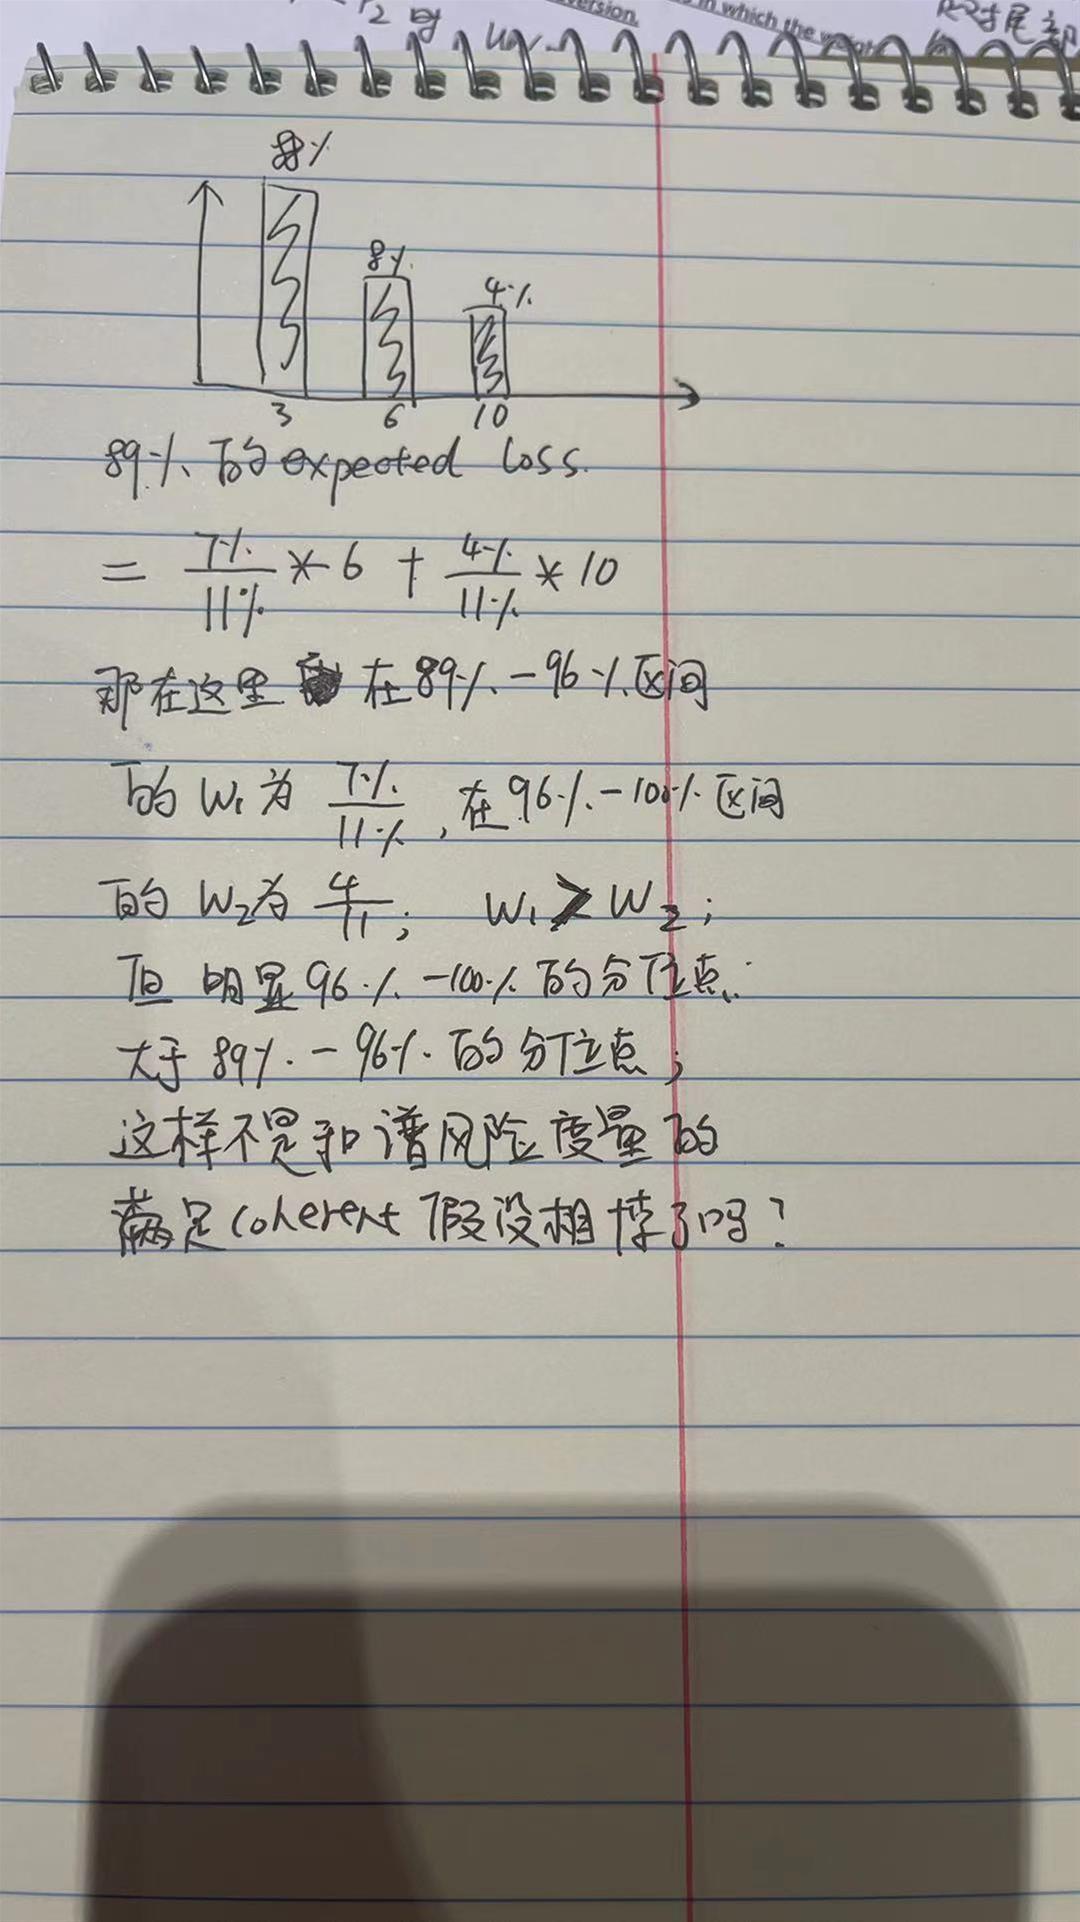 ersion.
in which the
88%
8%
4%
3 6 10
89% 的 expected loss.
= 7%/11% * 6 + 4%/11% * 10
那在这里 在 89% - 96% 区间
的 W₁ 为 7%/11%, 在 96% - 100% 区间
的 W₂ 为 4/11; W₁ > W₂;
但 明显 96% - 100% 的分位点
大于 89% - 96% 的分位点;
这样不是和谱风险度量的
满足 coherent 假设相悖了吗?